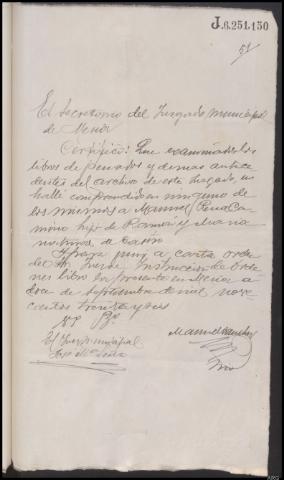 J.6.251.150
51
El Secretario del Juzgado municipal
de
Certifico: Que examinados los
libros de penados y demas antece
dentes del archivo de este Juzgado, no
hallé comprendido en ninguno de
los mismos a Manuel
hijo de Ramón y Maria
Y para que a carta orden
del Sr. Juez de Instrucción de Orde
nes libro la presente en a
doce de septiembre de mil nove
cientos treinta y seis
Vº Bº
El Juez municipal
Manuel